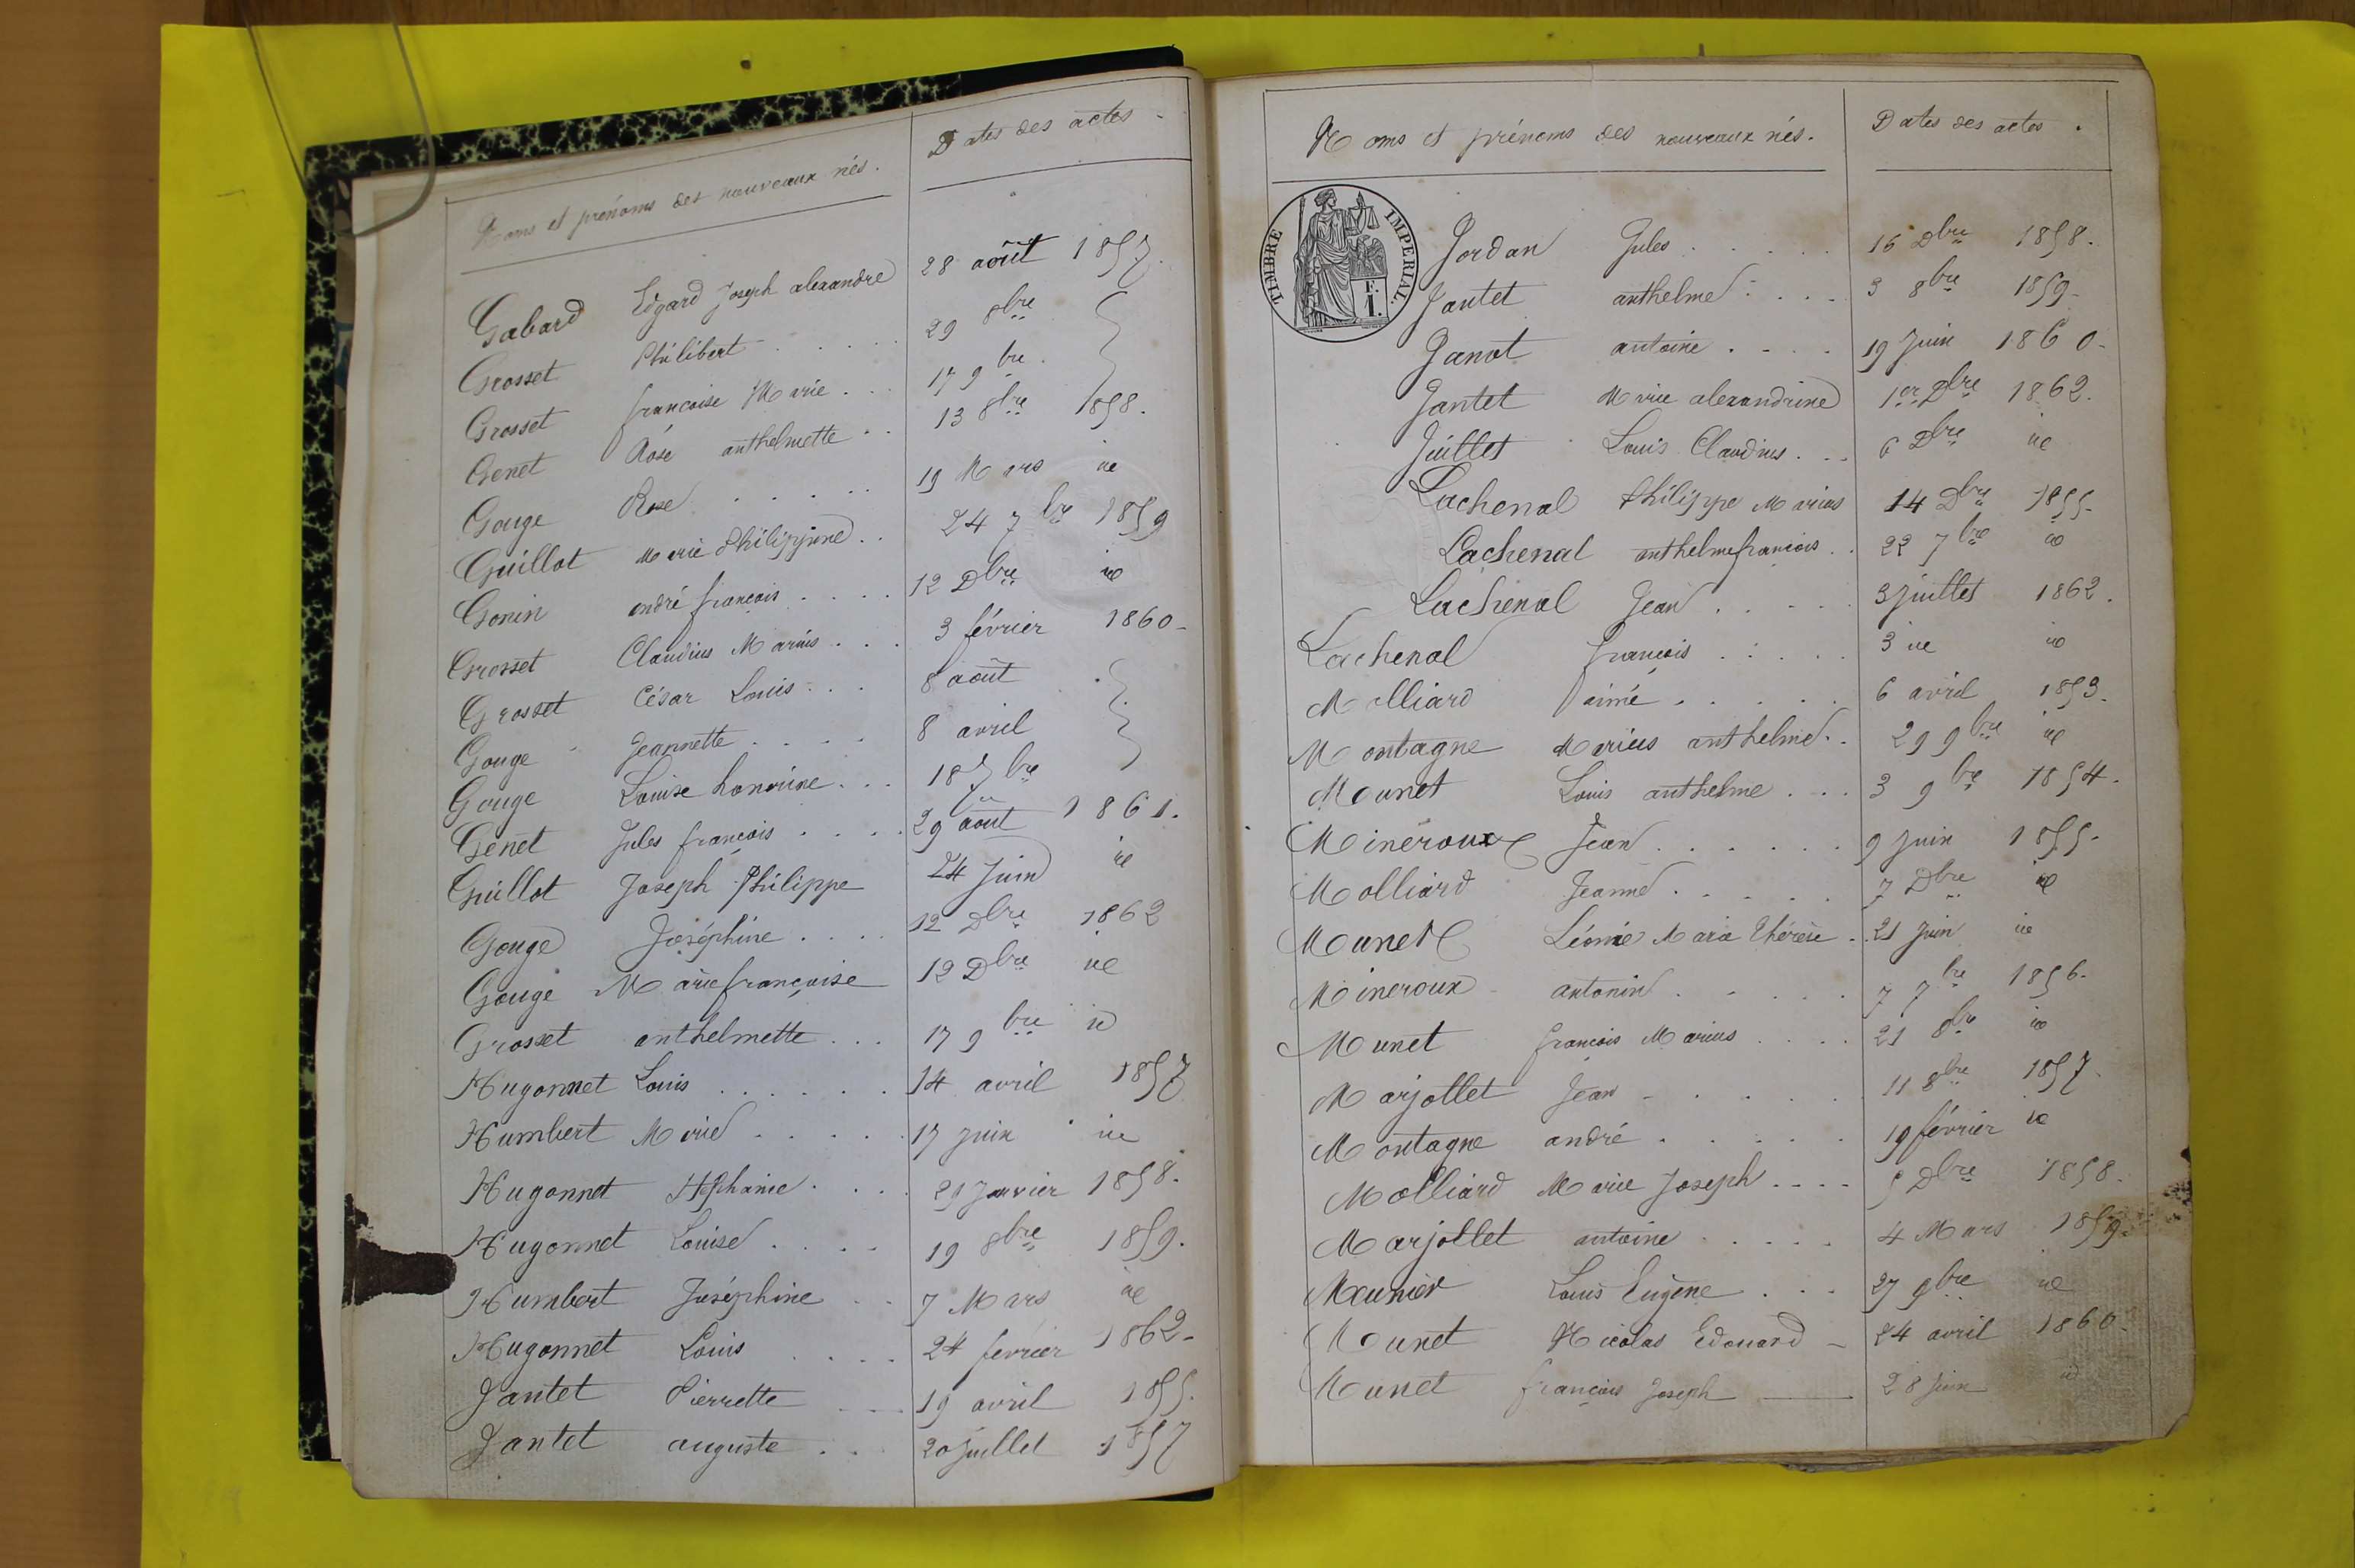 Noms et prénoms des nouveaux nés. Dates des actes
Gabard Edgard Joseph alexandre 28 août 1857.
Grosset Philibert 29 8bre
Grosset françoise Marie 17 9bre
Genet Rose anthelmette 13 8bre 1858.
Gouge Rose 19 Mars id
Guillot Marie Philippine 24 7bre 1859
Gonin andré françois 12 Dbre id
Grosset Claudius Marius 3 février 1860
Grosset César Louis 8 août
Gouge Jeannette 8 avril
Gouge Louise honorine 18 7bre
Genet Jules françois 29 août 1861.
Guillot Joseph Philippe 24 Juin id
Gouge Joséphine 12 Dbre 1862
Gouge Marie françoise 12 Dbre id
Grosset anthelmette 17 9bre id
Hugonnet Louis 14 avril 1857
Humbert Marie 17 Juin id
Hugonnet Stéphanie 29 Janvier 1858.
Hugonnet Louise 19 8bre 1859.
Humbert Joséphine 7 Mars id
Hugonnet Louis 24 fevrier 1862
Jantet Pierrette 19 avril 1855.
Jantet auguste 20 Juillet 1857
Noms et prénoms des nouveaux nés. Dates des actes.
TIMBRE IMPERIAL.
F.
1.
Jordan Jules 16 Dbre 1858.
Jantet anthelme 3 8bre 1859
Janot antoine 19 Juin 1860
Jantet Marie alexandrine 1er Dbre 1862.
Juillet Louis Claudius 6 Dbre id
Lachenal Philippe Marius 14 Dbre 1855
Lachenal anthelme françois 22 7bre id
Lachenal Jean 3 Juillet 1862.
Lachenal françois 3 id id
Molliard aimé 6 avril 1853.
Montagne Marius anthelme 29 9bre id
Munet Louis anthelme 3 9bre 1854.
Mineroux Jean 9 Juin 1855
Molliard Jeanne 7 Dbre id
Munet Léonie Marie Thérèse 21 Juin id
Mineroux antonin 7 7bre 1856
Munet françois Marius 21 8bre id
Marjollet Jean 11 8bre 1857
Montagne andré 19 février id
Molliard Marie Joseph 5 Dbre 1858.
Marjollet antoine 4 Mars 1859.
Meunier Louis Eugène 27 9bre id
Munet Nicolas Edouard 24 avril 1860
Munet françois Joseph 28 Juin id